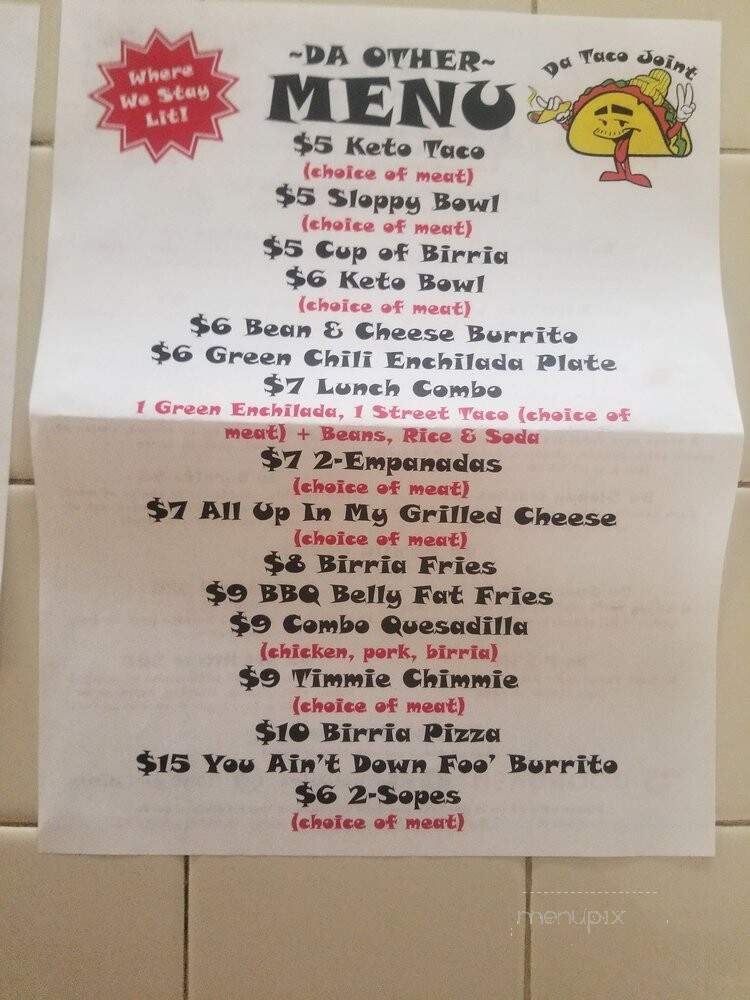 Where
We Stay
Lit!
~DA OTHER~
MENU
Da Taco Joint
$5 Keto Taco
(choice of meat)
$5 Sloppy Bowl
(choice of meat)
$5 Cup of Birria
$6 Keto Bowl
(choice of meat)
$6 Bean & Cheese Burrito
$6 Green Chili Enchilada Plate
$7 Lunch Combo
1 Green Enchilada, 1 Street Taco (choice of
meat) + Beans, Rice & Soda
$7 2-Empanadas
(choice of meat)
$7 All Up In My Grilled Cheese
(choice of meat)
$8 Birria Fries
$9 BBQ Belly Fat Fries
$9 Combo Quesadilla
(chicken, pork, birria)
$9 Timmie Chimmie
(choice of meat)
$10 Birria Pizza
$15 You Ain't Down Foo' Burrito
$6 2-Sopes
(choice of meat)
menupix